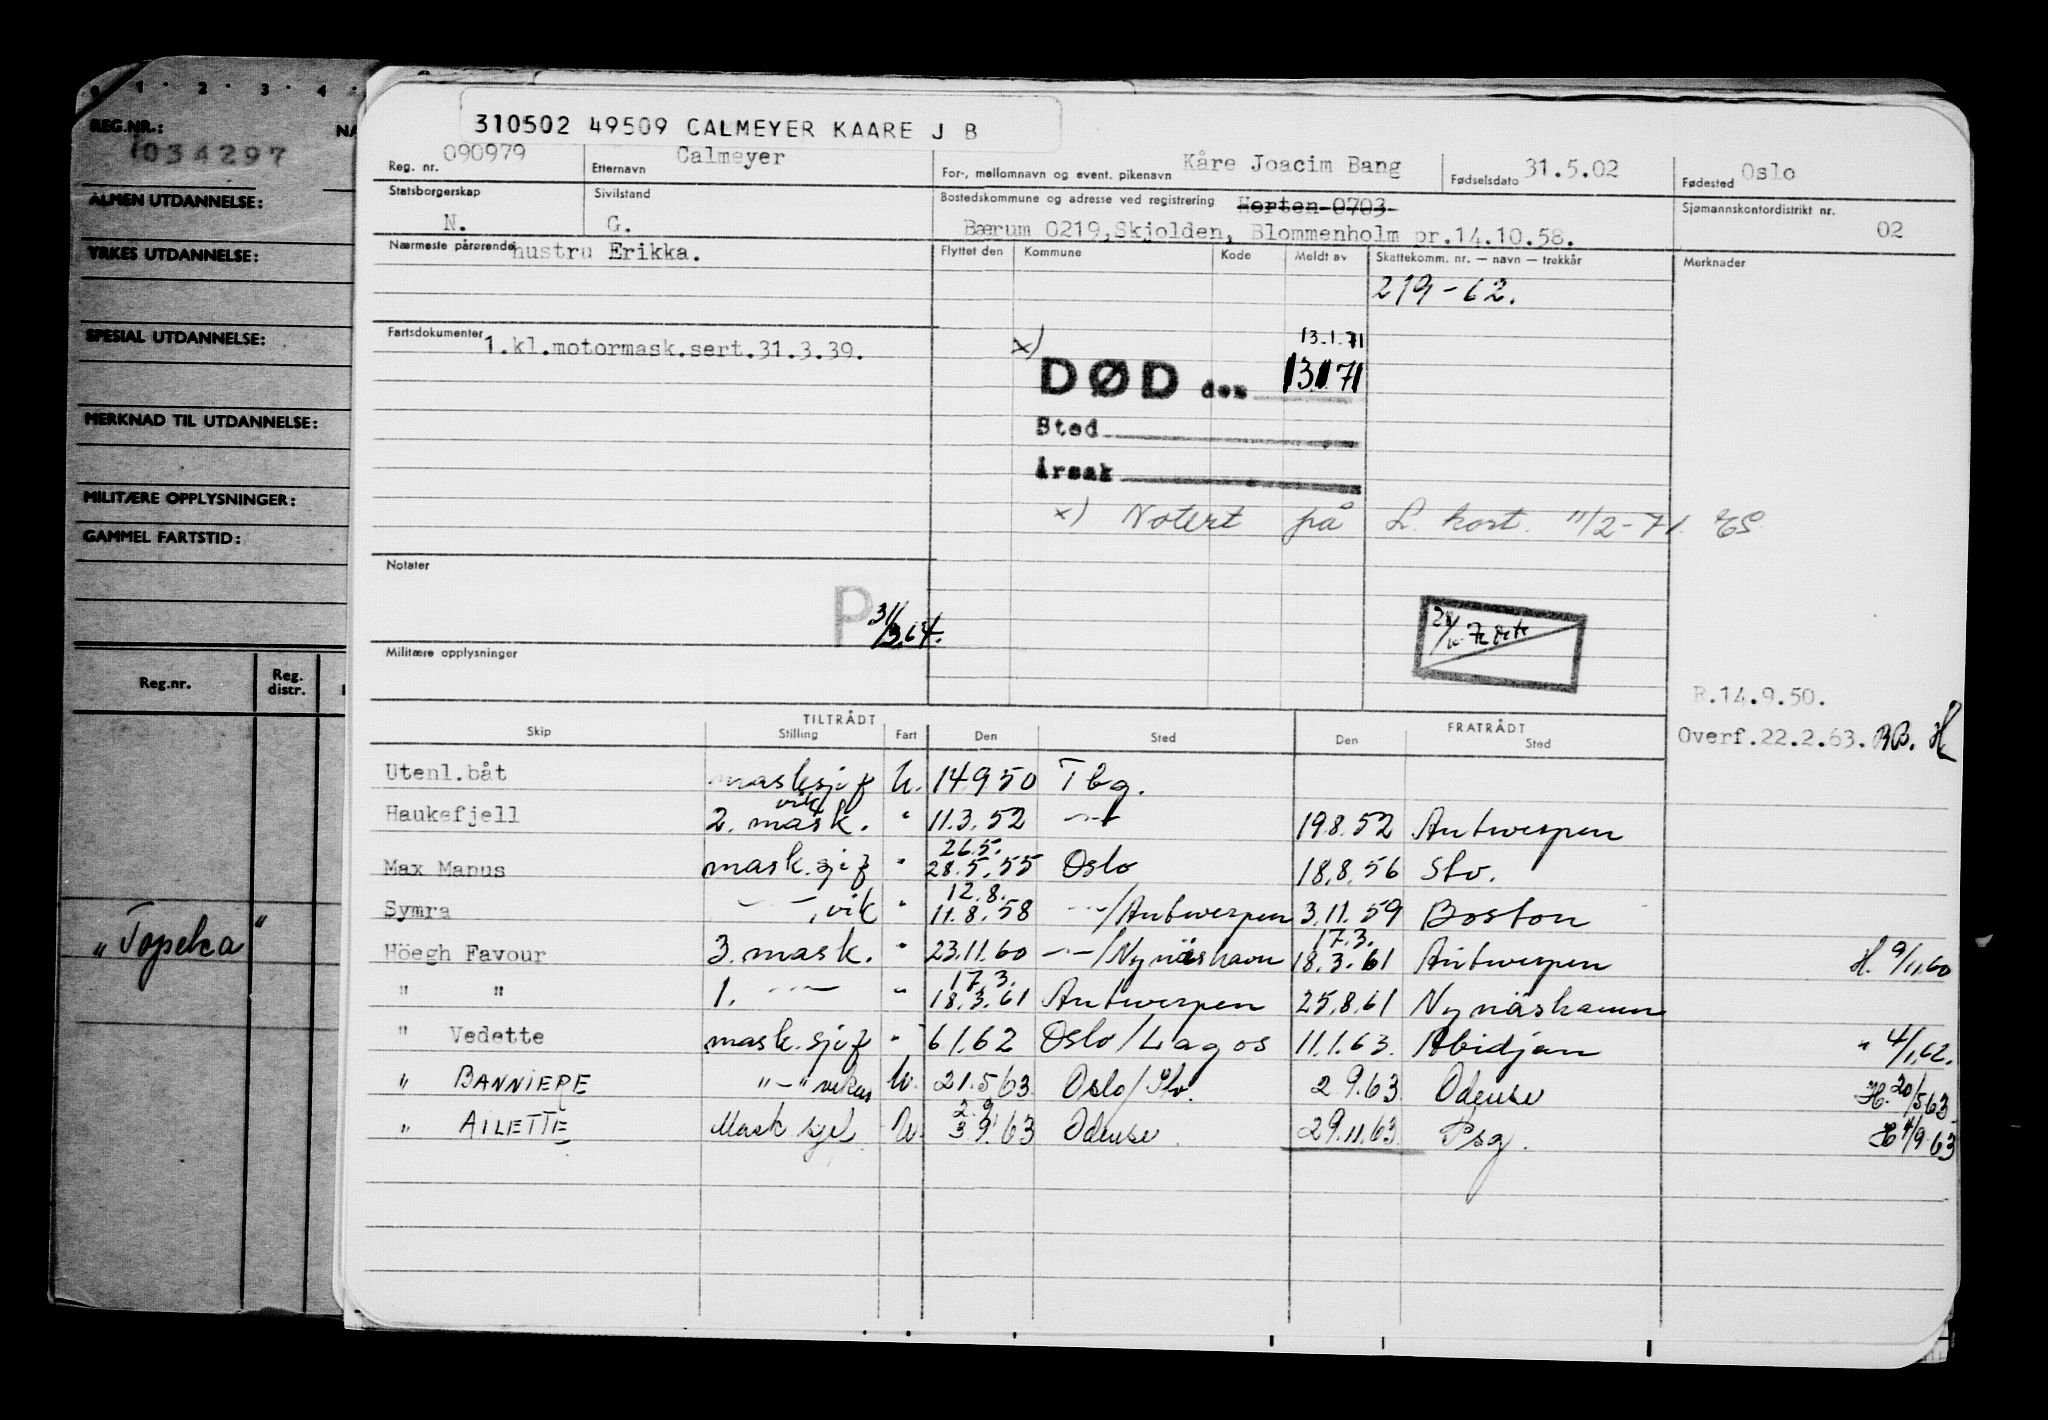 0 1 2 3 4
REG.NR.:
NA
1034297
ALMEN UTDANNELSE:
YRKES UTDANNELSE:
SPESIAL UTDANNELSE:
MERKNAD TIL UTDANNELSE:
MILITÆRE OPPLYSNINGER:
GAMMEL FARTSTID:
Reg.nr. Reg. distr.
"Topeka"
310502 49509 CALMEYER KAARE J B
Reg. nr. 090979 Etternavn Calmeyer For-, mellomnavn og event. pikenavn Kåre Joacim Bang Fødselsdato 31.5.02 Fødested Oslo
Statsborgerskap Sivilstand Bostedskommune og adresse ved registrering Horten 0703 Sjømannskontordistrikt nr.
N. G. Bærum 0219, Skjolden, Blommenholm pr.14.10.58. 02
Nærmeste pårørende hustru Erikka. Flyttet den Kommune Kode Meldt av Skattekomm. nr. — navn — trekkår Merknader
219-62.
Fartsdokumenter 1.kl.motormask.sert.31.3.39.
13.1.71
x) DØD den 13.1.71
Sted
Årsak
x) Notert på L. kort. 11/2-71.
Notater
P 31/3.64.
Militære opplysninger
R.14.9.50.
Overf.22.2.63. BB. H
TILTRÅDT FRATRÅDT
Skip Stilling Fart Den Sted Den Sted
Utenl.båt masksjef U. 14.9.50 Tbg.
Haukefjell 2. mask. vik " 11.3.52 -"- 19.8.52 Antwerpen
26.5.
Max Manus mask.sjef " 28.5.55 Oslo 18.8.56 Stv.
12.8.
Symra -"-, vik " 11.8.58 -"-/Antwerpen 3.11.59 Boston
17.3.
Höegh Favour 3. mask. " 23.11.60 -"-/Nynäshavn 18.3.61 Antwerpen H. 9/11.60
17.3.
" " 1. -"- " 18.3.61 Antwerpen 25.8.61 Nynäshamn
" Vedette mask.sjef " 6.1.62 Oslo/Lagos 11.1.63. Abidjan " 4/1.62.
" BANNIERE "-" vikar U. 21.5.63 Oslo/Slv. 2.9.63 Odense H. 20/5 63
2.9
" AILETTE Mask sjef. U. 3.9.63 Odense. 29.11.63. Psg. H 4/9-63